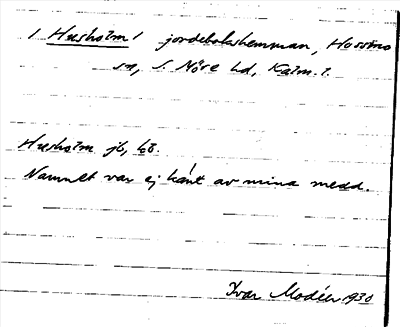 / Husholm / jordebokshemman, Hossmo
sn, S. Möre hd, Kalm. l.
Husholm jb, kb.
Namnet var ej känt av mina medd.
Ivar Modéer 1930